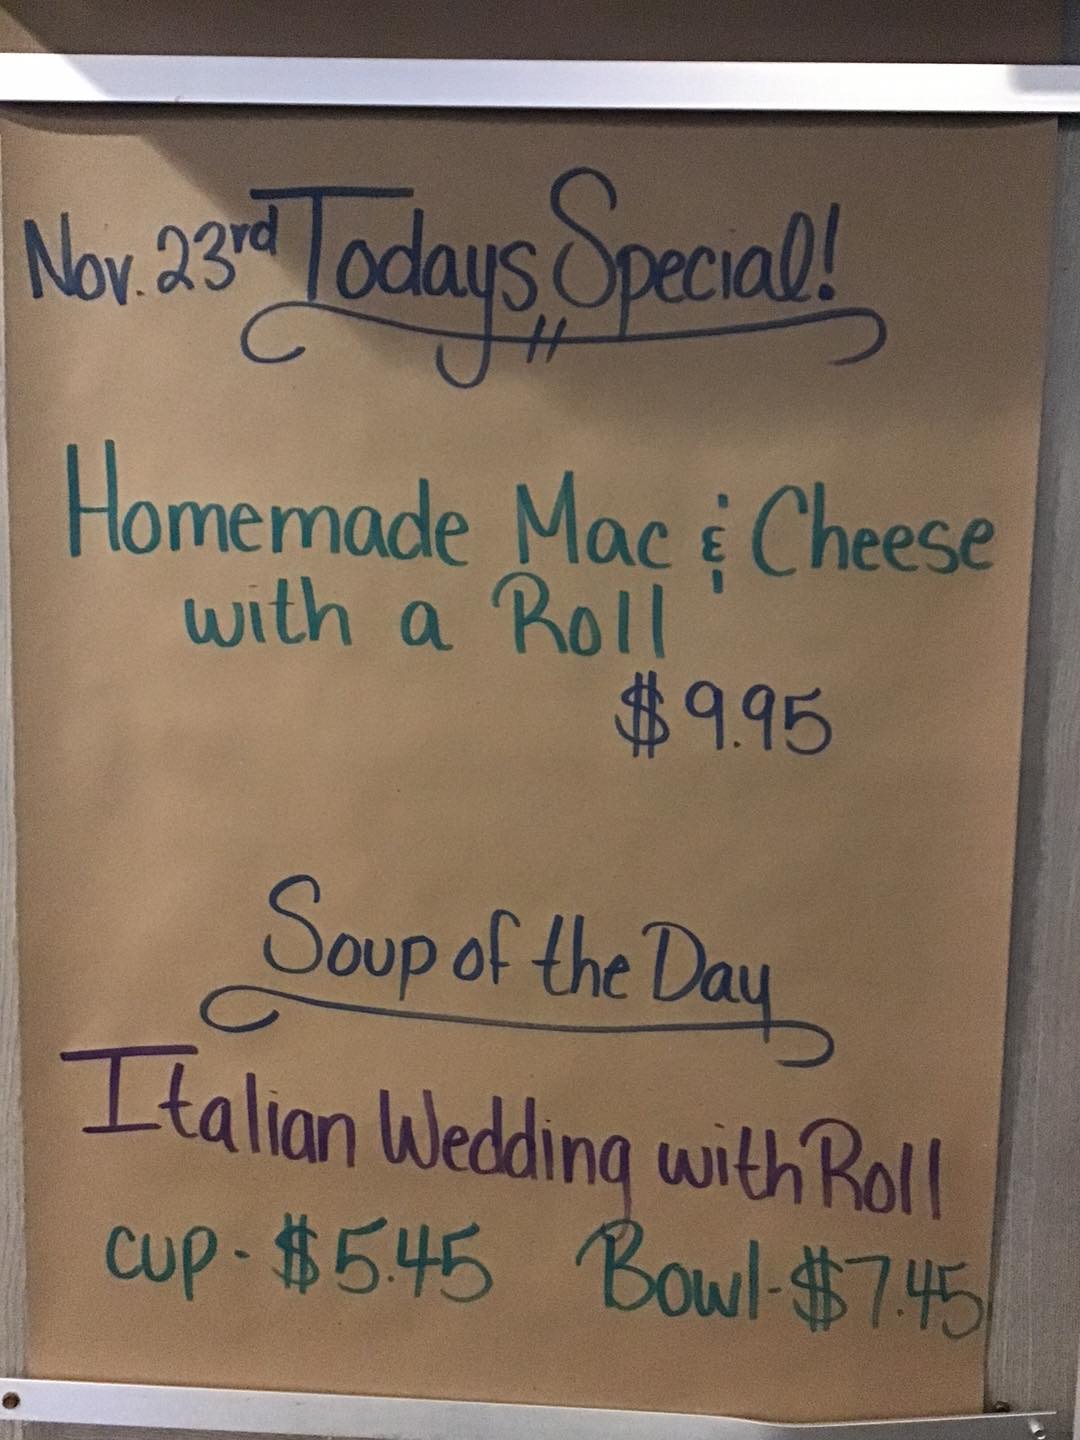 Nov. 23rd Todays Special!
Homemade Mac & Cheese
with a Roll
$9.95
Soup of the Day
Italian Wedding with Roll
cup - $5.45 Bowl - $7.45